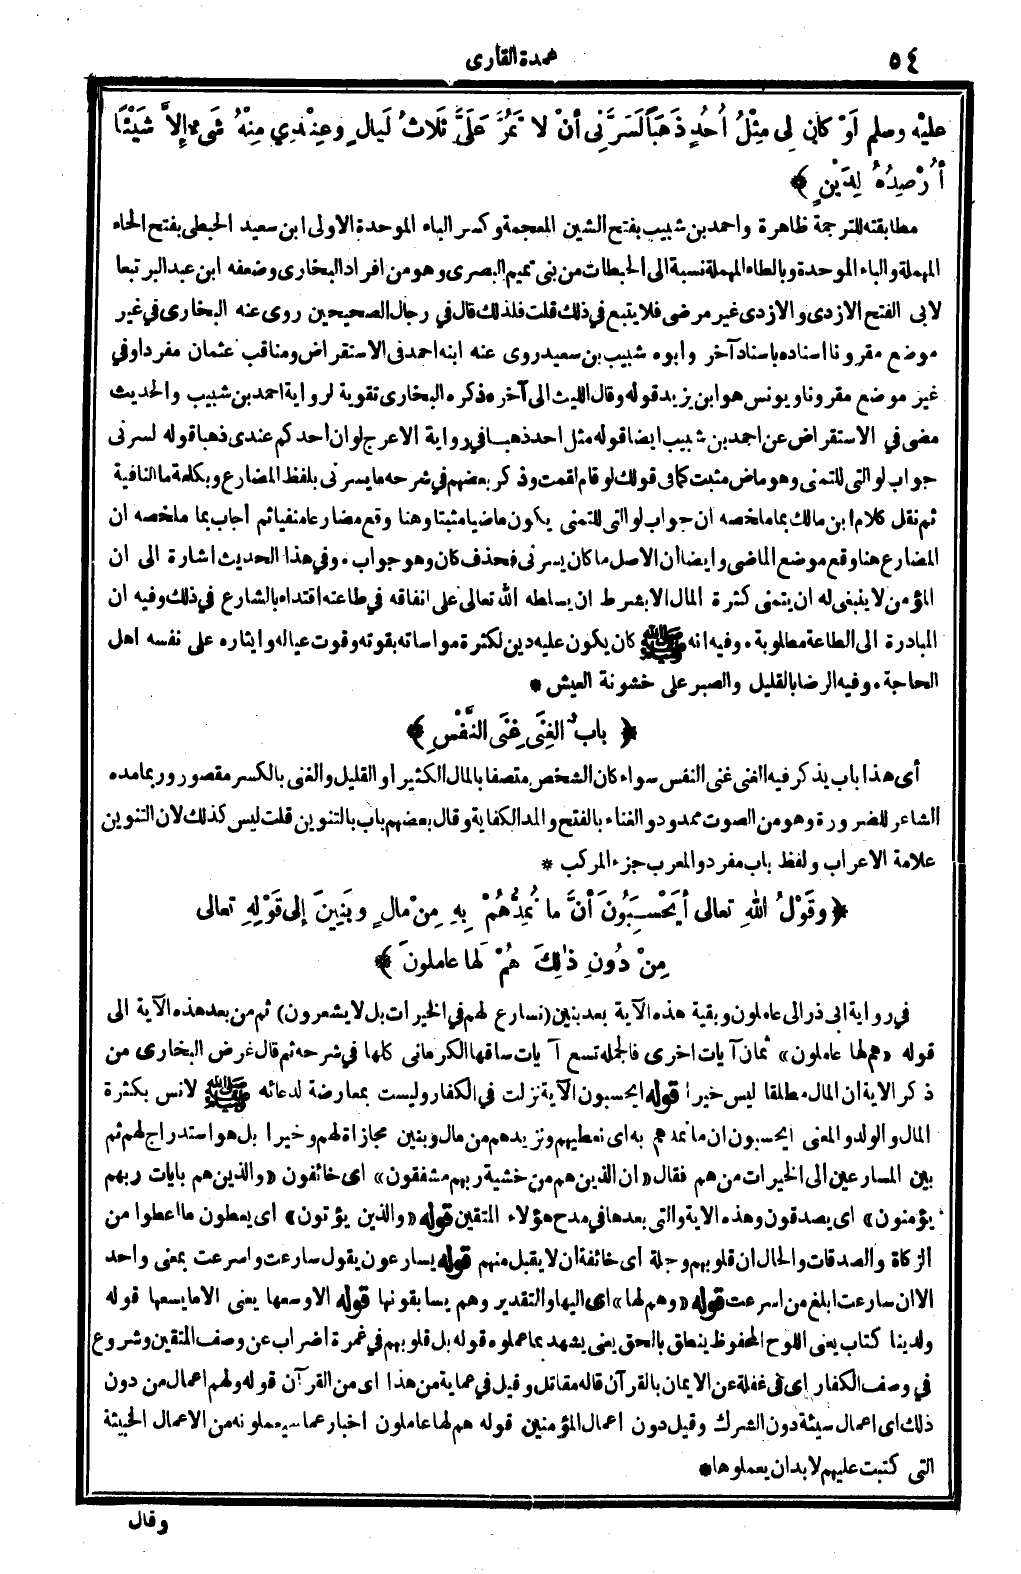 ٥٤
عمدة القارى
عليْه وسلم لَوْ كانَ لِى مِثْلُ أُحُدٍ ذَهَبًا لَسَرَّنِى أنْ لا تَمُرَّ عَلَىَّ ثَلاثُ لَيالٍ وعِنْدِي مِنْهُ شَىْءٌ إلاَّ شَيْئًا
أُرْصِدُهُ لِدَيْنٍ ﴾
مطابقته للترجمة ظاهرة واحمد بن شبيب بفتح الشين المعجمة وكسر الباء الموحدة الاولى ابن سعيد الحبطى بفتح الحاء
المهملة والباء الموحدة وبالطاء المهملة نسبة الى الحبطات من بنى تميم البصرى وهو من افراد البخارى وضعفه ابن عبد البر تبعا
لابى الفتح الازدى والازدى غير مرضى فلا يتبع فى ذلك قلت فلذلك قال فى رجال الصحيحين روى عنه البخارى فى غير
موضع مقرونا اسناده باسناد آخر وابوه شبيب بن سعيد روى عنه ابنه احمد فى الاستقراض ومناقب عثمان مفردا وفى
غير موضع مقرونا ويونس هو ابن يزيد قوله وقال الليث الى آخره ذكره البخارى تقوية لرواية احمد بن شبيب والحديث
مضى فى الاستقراض عن احمد بن شبيب ايضا قوله مثل احد ذهبا فى رواية الاعرج لو ان احدكم عندى ذهبا قوله لسرنى
جواب لو التى للتمنى وهو ماض مثبت كما فى قولك لو قام لقمت وذكر بعضهم فى شرحه ما يسرنى بلفظ المضارع وبكلمة ما النافية
ثم نقل كلام ابن مالك بما ملخصه ان جواب لو التى للتمنى يكون ماضيا مثبتا وهنا وقع مضارعا منفيا ثم أجاب بما ملخصه ان
المضارع هنا وقع موضع الماضى وايضا ان الاصل ما كان يسرنى فحذف كان وهو جواب . وفى هذا الحديث اشارة الى ان
المؤمن لا ينبغى له ان يتمنى كثرة المال الا بشرط ان يسلطه الله تعالى على انفاقه فى طاعته اقتداء بالشارع فى ذلك وفيه ان
المبادرة الى الطاعة مطلوبة . وفيه انه ﷺ كان يكون عليه دين لكثرة مواساته بقوته وقوت عياله وايثاره على نفسه اهل
الحاجة . وفيه الرضا بالقليل والصبر على خشونة العيش *
﴿ بابٌ الغِنَى غِنَى النَّفْسِ ﴾
أى هذا باب يذكر فيه الغنى غنى النفس سواء كان الشخص متصفا بالمال الكثير او القليل والغنى بالكسر مقصور وربما مده
الشاعر للضرورة وهو من الصوت ممدود والغناء بالفتح والمد الكفاية وقال بعضهم باب بالتنوين قلت ليس كذلك لان التنوين
علامة الاعراب ولفظ باب مفرد والمعرب جزء المركب *
﴿ وقَوْلُ اللهِ تعالى أيَحْسِبُونَ أنَّ ما نُمِدُّهُمْ بِهِ مِنْ مالٍ وبَنِينَ إلى قَوْلِهِ تعالى
مِنْ دُونِ ذٰلِكَ هُمْ لَها عاملونَ ﴾
فى رواية ابى ذر الى عاملون وبقية هذه الآية بعد بنين (نسارع لهم فى الخيرات بل لا يشعرون) ثم من بعد هذه الآية الى
قوله «هم لها عاملون» ثمان آيات اخرى فالجملة تسع آيات ساقها الكرمانى كلها فى شرحه ثم قال غرض البخارى من
ذكر الاية ان المال مطلقا ليس خيرا قوله ايحسبون الآية نزلت فى الكفار وليست بمعارضة لدعائه ﷺ لانس بكثرة
المال والولد والمعنى ايحسبون ان ما نمدهم به اى نعطيهم ونزيدهم من مال وبنين مجازاة لهم وخيرا بل هو استدراج لهم ثم
بين المسارعين الى الخيرات من هم فقال «ان الذين هم من خشية ربهم مشفقون» اى خائفون «والذين هم بايات ربهم
يؤمنون» اى يصدقون وهذه الاية والتى بعدها فى مدح هؤلاء المتقين قوله «والذين يؤتون» اى يعطون ما اعطوا من
الزكاة والصدقات والحال ان قلوبهم وجلة أى خائفة أن لا يقبل منهم قوله يسارعون يقول سارعت واسرعت بمعنى واحد
الا ان سارعت ابلغ من اسرعت قوله «وهم لها» اى اليها والتقدير وهم يسابقونها قوله الا وسعها يعنى الا ما يسعها قوله
ولدينا كتاب يعنى اللوح المحفوظ ينطق بالحق يعنى يشهد بما عملوه قوله بل قلوبهم فى غمرة اضراب عن وصف المتقين وشروع
فى وصف الكفار أى فى غفلة عن الايمان بالقرآن قاله مقاتل وقيل فى عماية من هذا اى من القرآن قوله ولهم اعمال من دون
ذلك اى اعمال سيئة دون الشرك وقيل دون اعمال المؤمنين قوله هم لها عاملون اخبار عما سيعملونه من الاعمال الخبيثة
التى كتبت عليهم لا بد ان يعملوها *
وقال